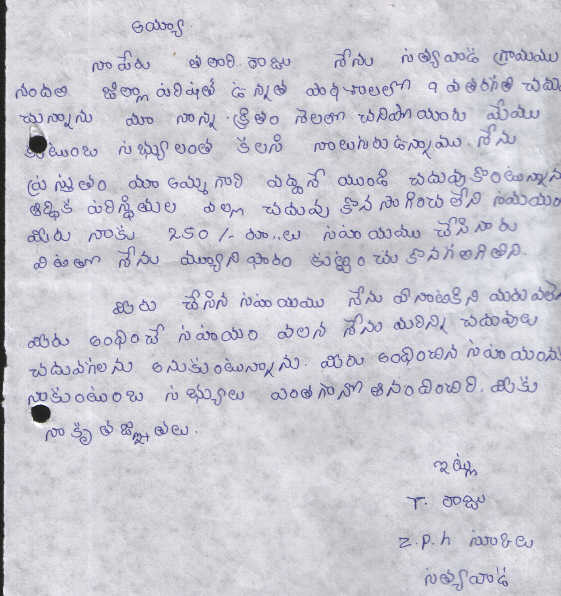 అయ్యా.
నా పేరు తలారి రాజు నేను సత్యవాడ గ్రామము
నందలి జిల్లా పరిషత్ ఉన్నత పాఠశాలలో 9 వ తరగతి చదువు
చున్నాను మా నాన్న క్రితం నెలలో చనిపోయారు మేము
కుటుంబ సభ్యులంత కలసి నాలుగురు ఉన్నాము. నేను
ప్రస్తుతం మా అమ్మ గారి వద్దనే యుండి చదువు కొంటున్నాన
ఆర్థిక పరిస్థితుల వల్ల చదువు కొనసాగించు లేని సమయం
మీరు నాకు 250/- రూ..లు సహాయము చేసినారు
వీటితో నేను మ్యూని ఫారం కుట్టించు కొనగలిగితిని.
మీరు చేసిన సహాయము నేను ఏనాటికిని మరువలే
మీరు అంధించే సహాయం వలన నేను మరిన్ని చదువులు
చదువగలను అనుకుంటున్నాను. మీరు అంధించిన సహాయంను
నాకుంటుంబ సభ్యులు ఎంతగానో ఆనందించిరి. మీకు
నా కృతజ్ఞతలు.
ఇట్లు
T. రాజు
Z.P.h స్కూలు
సత్యవాడ